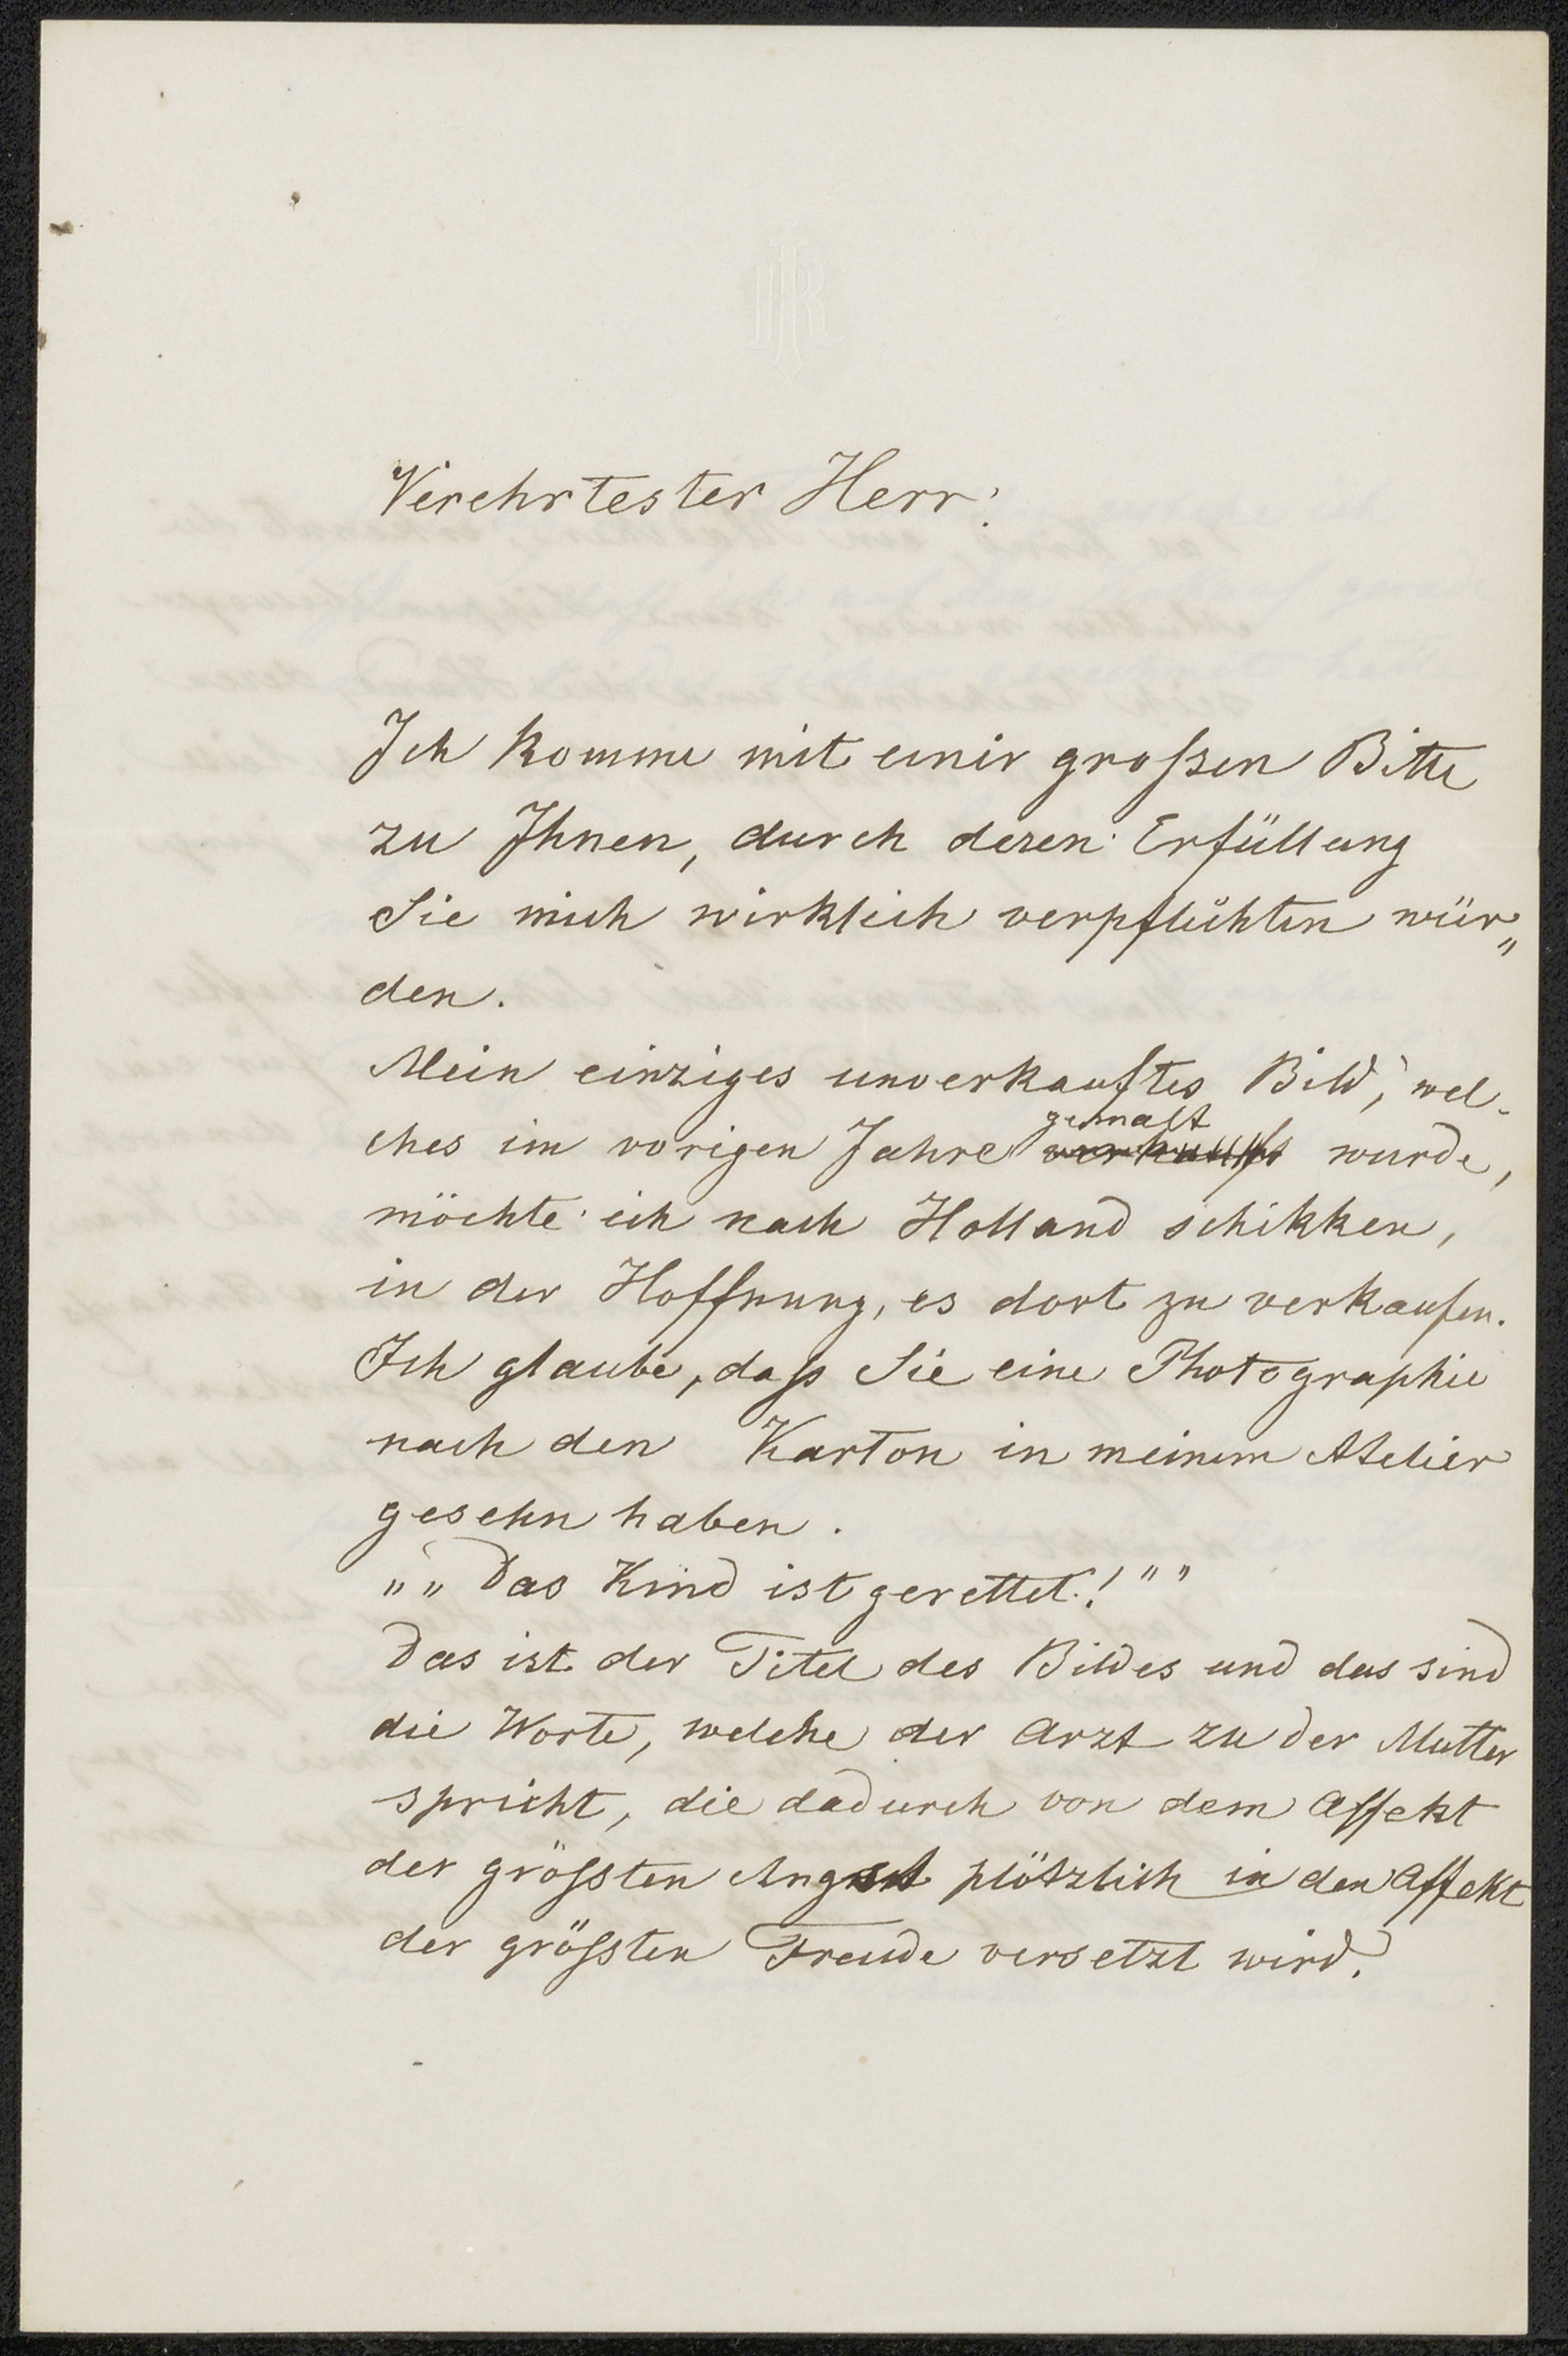 JR
Verehrtester Herr!
Ich komme mit einer großen Bitte
zu Ihnen, durch deren Erfüllung
Sie mich wirklich verpflichten wür„
den.
Mein einziges unverkauftes Bild, wel-
gemalt
ches im vorigen Jahre verkauft wurde,
möchte ich nach Holland schikken,
in der Hoffnung, es dort zu verkaufen.
Ich glaube, daß Sie eine Photographie
nach den Karton in meinem Atelier
gesehn haben.
„„Das Kind ist gerettet!""
Das ist der Titel des Bildes und das sind
die Worte, welche der Arzt zu der Mutter
spricht, die dadurch von dem Affekt
der größsten Angst plötzlich in den Affekt
der größsten Freude versetzt wird.